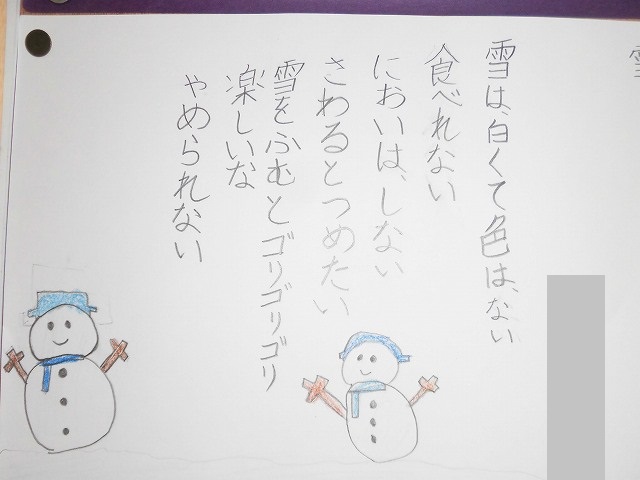 雪は、白くて色は、ない
食べれない
においは、しない
さわるとつめたい
雪をふむとゴリゴリゴリ
楽しいな
やめられない